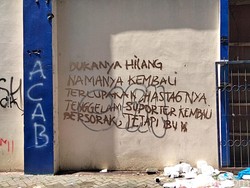 DUKANYA HILANG
NAMANYA KEMBALI
TERLUPAKAN HASTAGNYA
TENGGELAM SUPORTER KEMBALI
BERSORAK, TETAPI IBU K
ACAB